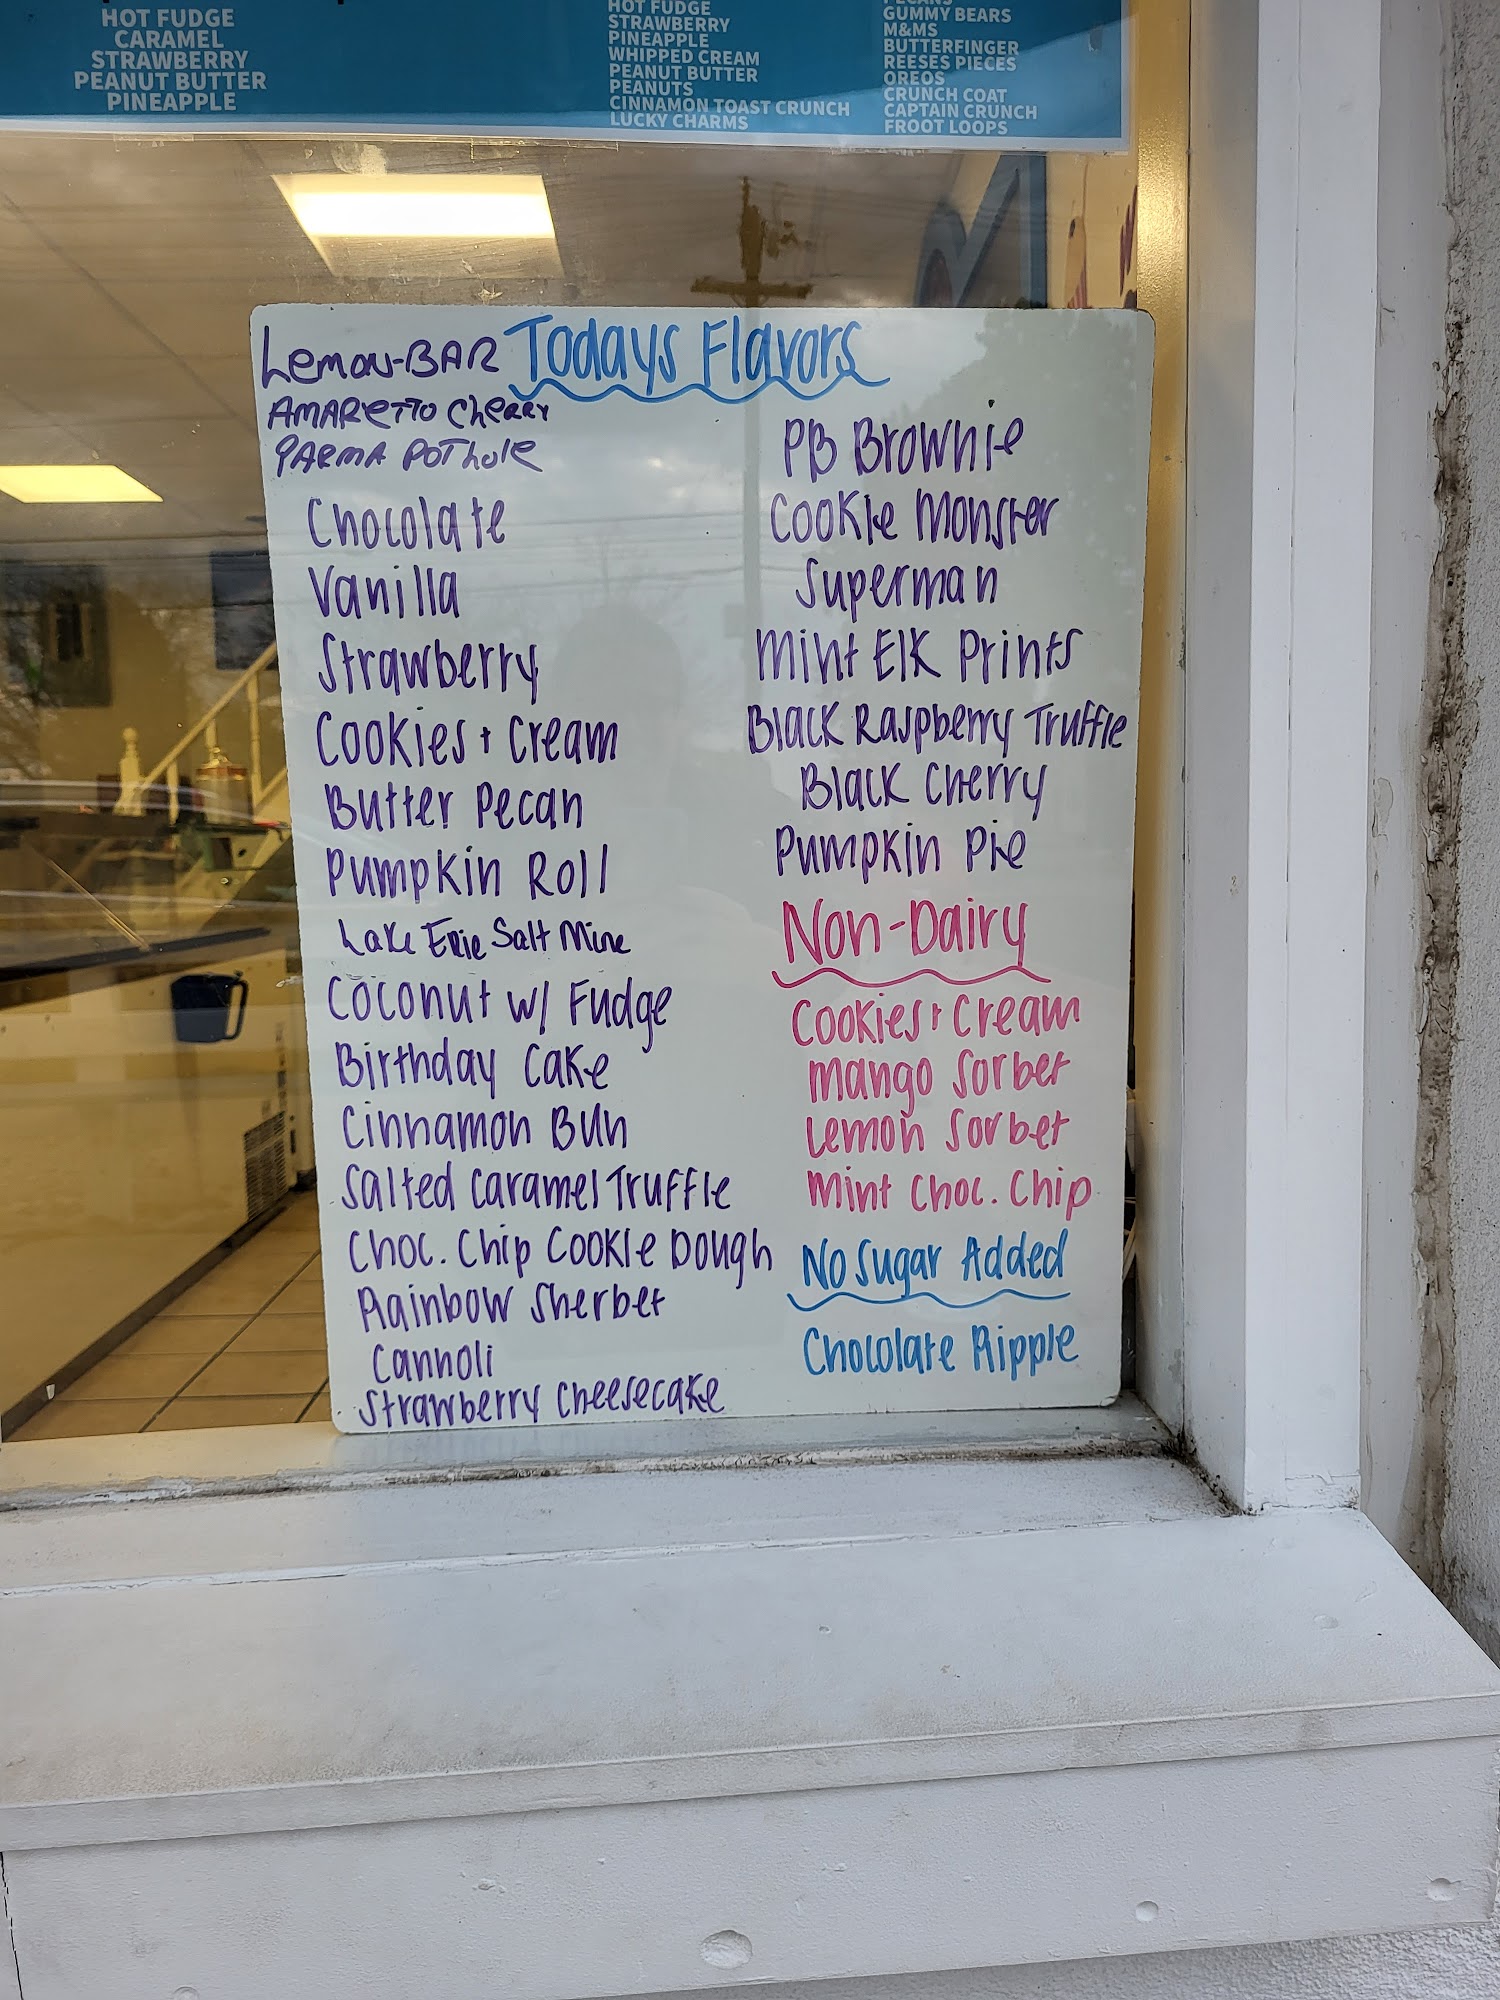 HOT FUDGE
CARAMEL
STRAWBERRY
PEANUT BUTTER
PINEAPPLE
HOT FUDGE
STRAWBERRY
PINEAPPLE
WHIPPED CREAM
PEANUT BUTTER
PEANUTS
CINNAMON TOAST CRUNCH
LUCKY CHARMS
PECANS
GUMMY BEARS
M&MS
BUTTERFINGER
REESES PIECES
OREOS
CRUNCH COAT
CAPTAIN CRUNCH
FROOT LOOPS
Todays Flavors
Lemon-BAR
AMARETTO CHERRY
PARMA POTHOLE
Chocolate
Vanilla
Strawberry
Cookies + Cream
Butter Pecan
Pumpkin Roll
Lake Erie Salt Mine
Coconut w/ Fudge
Birthday Cake
Cinnamon Bun
Salted Caramel Truffle
Choc. Chip Cookie Dough
Rainbow Sherbet
Cannoli
Strawberry Cheesecake
PB Brownie
Cookie Monster
Superman
Mint Elk Prints
Black Raspberry Truffle
Black Cherry
Pumpkin Pie
Non-Dairy
Cookies + Cream
Mango Sorbet
Lemon Sorbet
Mint Choc. Chip
No Sugar Added
Chocolate Ripple